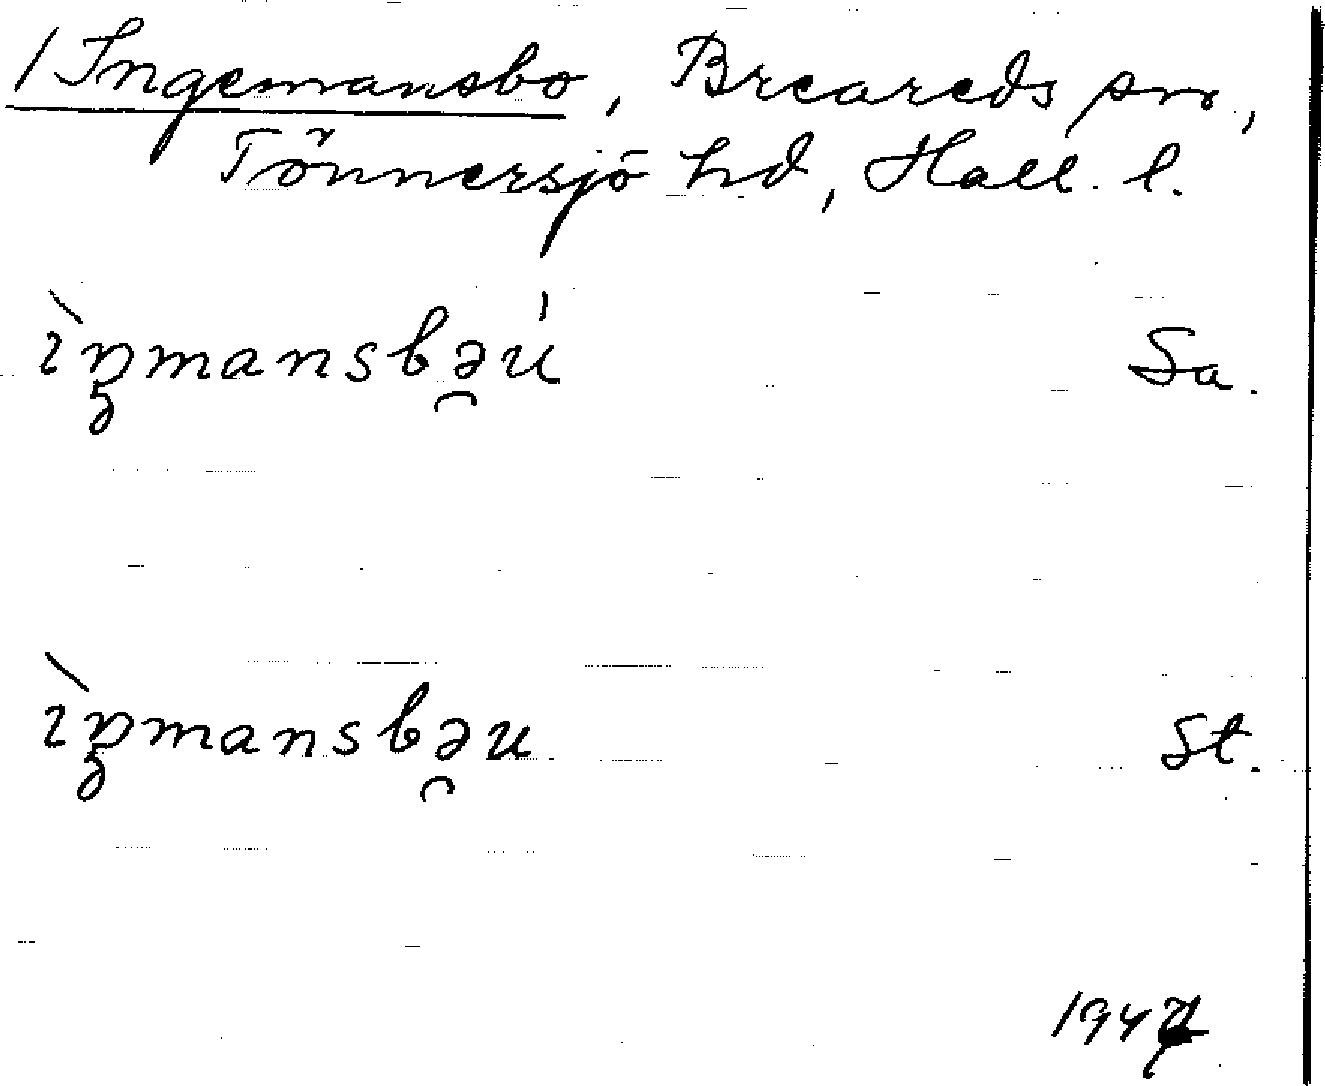 / Ingemansbo, Breareds sn,
Tönnersjö hd, Hall. l.
ìŋmansbə̯ú Sa.
ìŋmansbə̯u St.